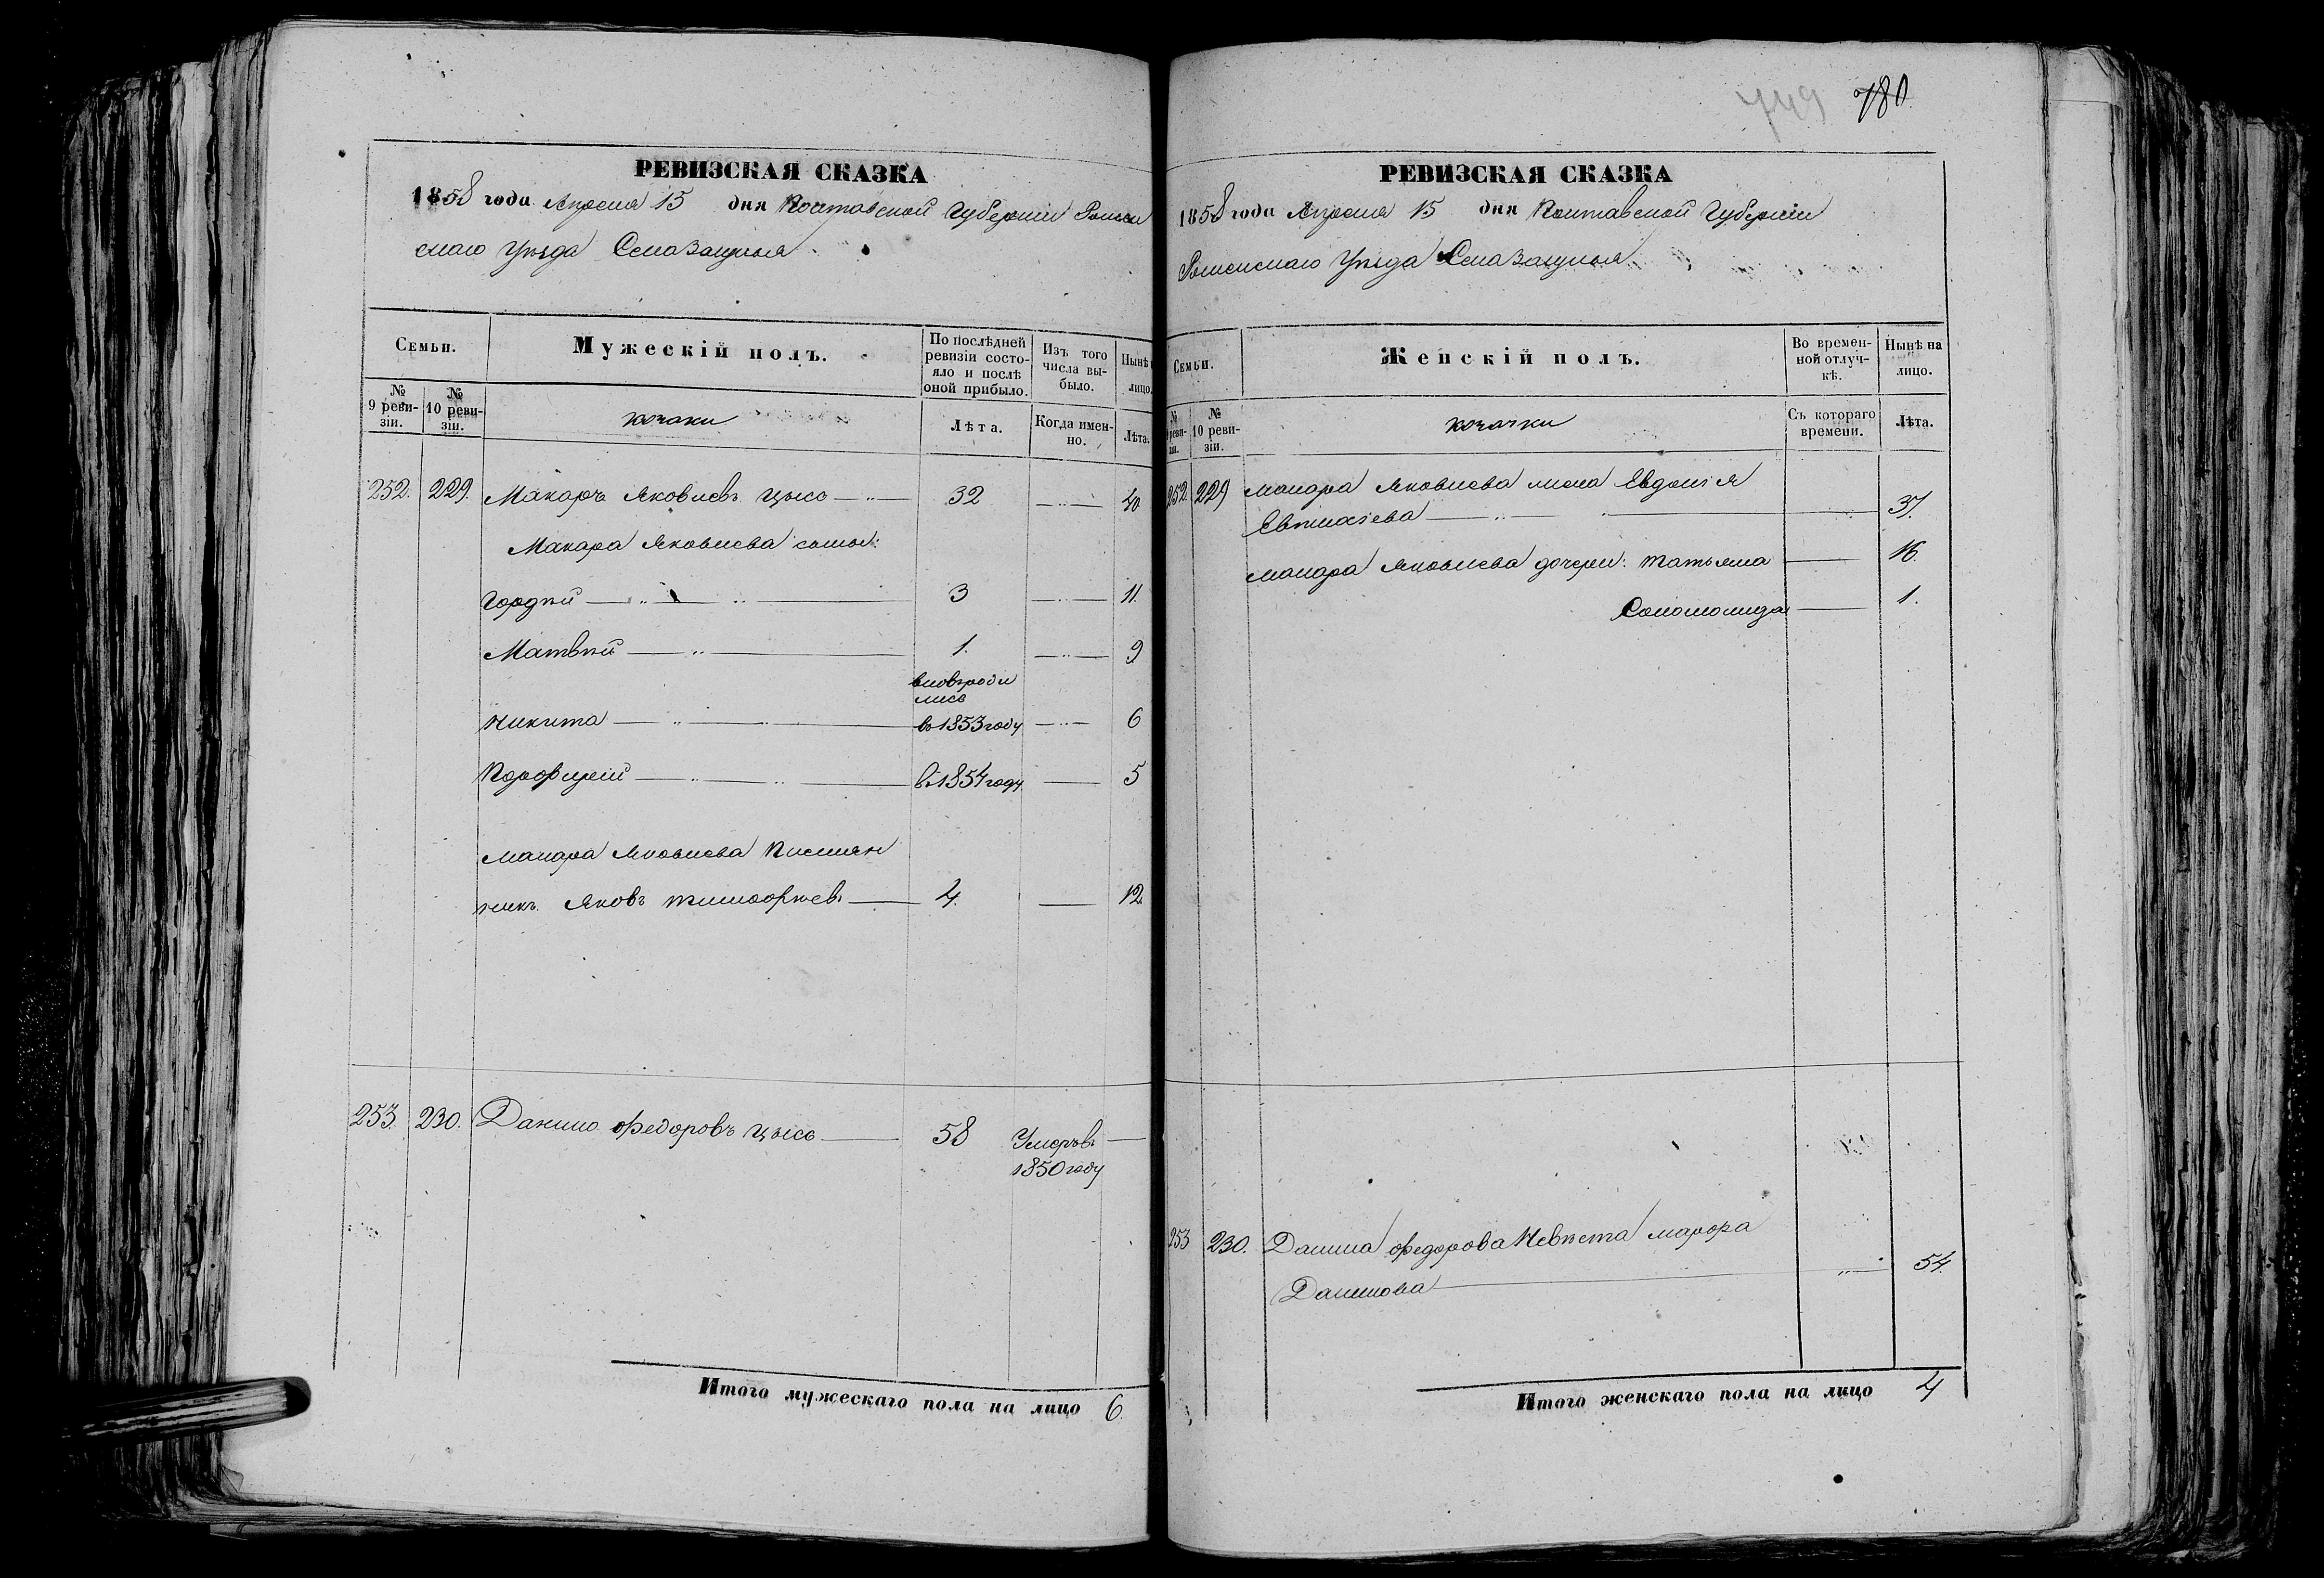 749 780
РЕВИЗСКАЯ СКАЗКА
1858 года Апреля 15 дня Полтавской Губернии Роменскаго Уѣзда Села Зацыпья
Семьи.
Мужескій полъ.
По послѣдней ревизіи состояло и послѣ оной прибыло.
Изъ того числа выбыло.
Нынѣ на лицо.
№ 9 ревизіи.
№ 10 ревизіи.
козаки
Лѣта.
Когда именно.
Лѣта.
252. 229. Макаръ Яковлевъ Цысь 32 40
Макара Яковлева сыны:
Гордѣй 3 11.
Матвѣй 1. 9
вновьроди
лись
Никита въ 1853 году 6
Порфирій въ 1854 году 5
Макара Яковлева Племян
никъ Яковъ Тимофѣевъ 4. 12.
253. 230. Данило Федоровъ Цысь 58 Умеръ въ
1850 году
Итого мужескаго пола на лицо 6.
РЕВИЗСКАЯ СКАЗКА
1858 года Апреля 15 дня Полтавской Губерніи
Роменскаго Уѣзда Села
Семьи.
Женскій полъ.
Во временной отлучкѣ.
Нынѣ на лицо.
№ 9 ревизіи.
№ 10 ревизіи.
козачки
Съ котораго времени.
Лѣта.
252. 229 Макара Яковлева жена Евдокія
Евтихіева 37.
Макара Яковлева дочери: Татьяна 16.
Соломонида 1.
253 230. Данила Федорова Невѣста Марфа
Данилова 54.
Итого женскаго пола на лицо 4